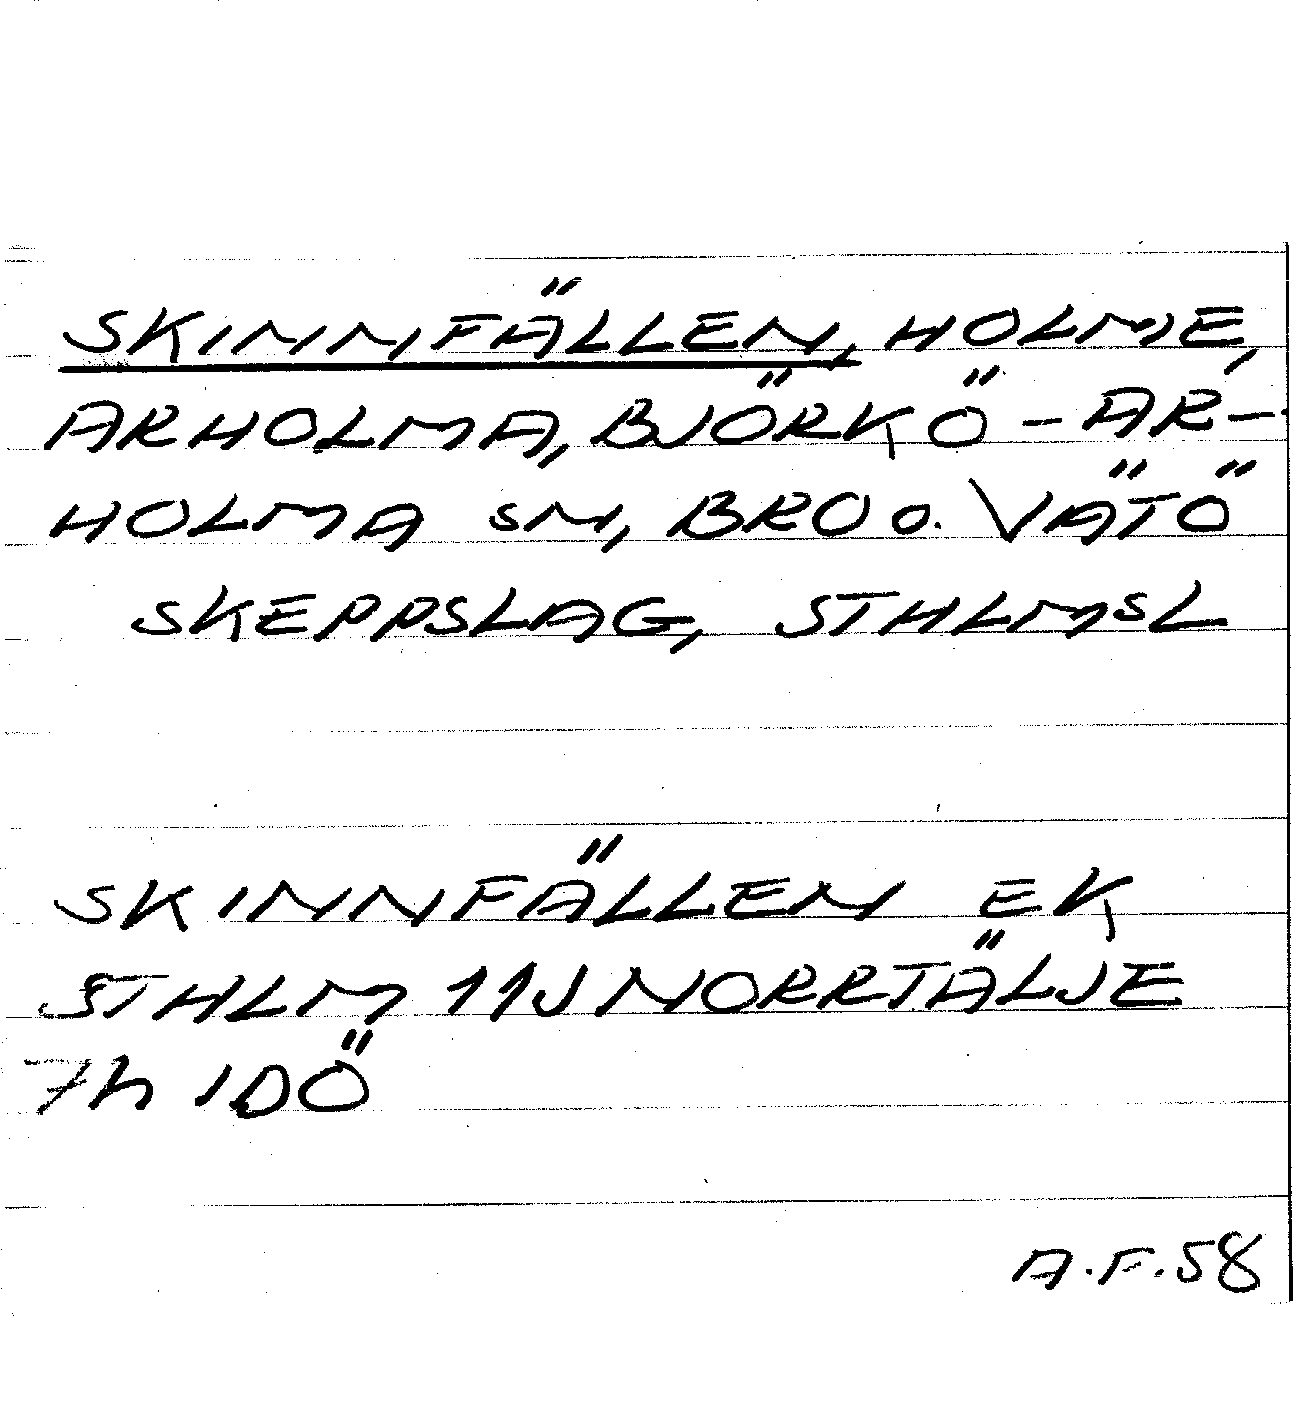 SKINNFÄLLEN, HOLME,
ARHOLMA, BJÖRKÖ - AR-
HOLMA SN, BRO O. VÄTÖ
SKEPPSLAG, STHLMSL
SKINNFÄLLEN EK
STHLM 11J NORRTÄLJE
7h IDÖ
A.F.58